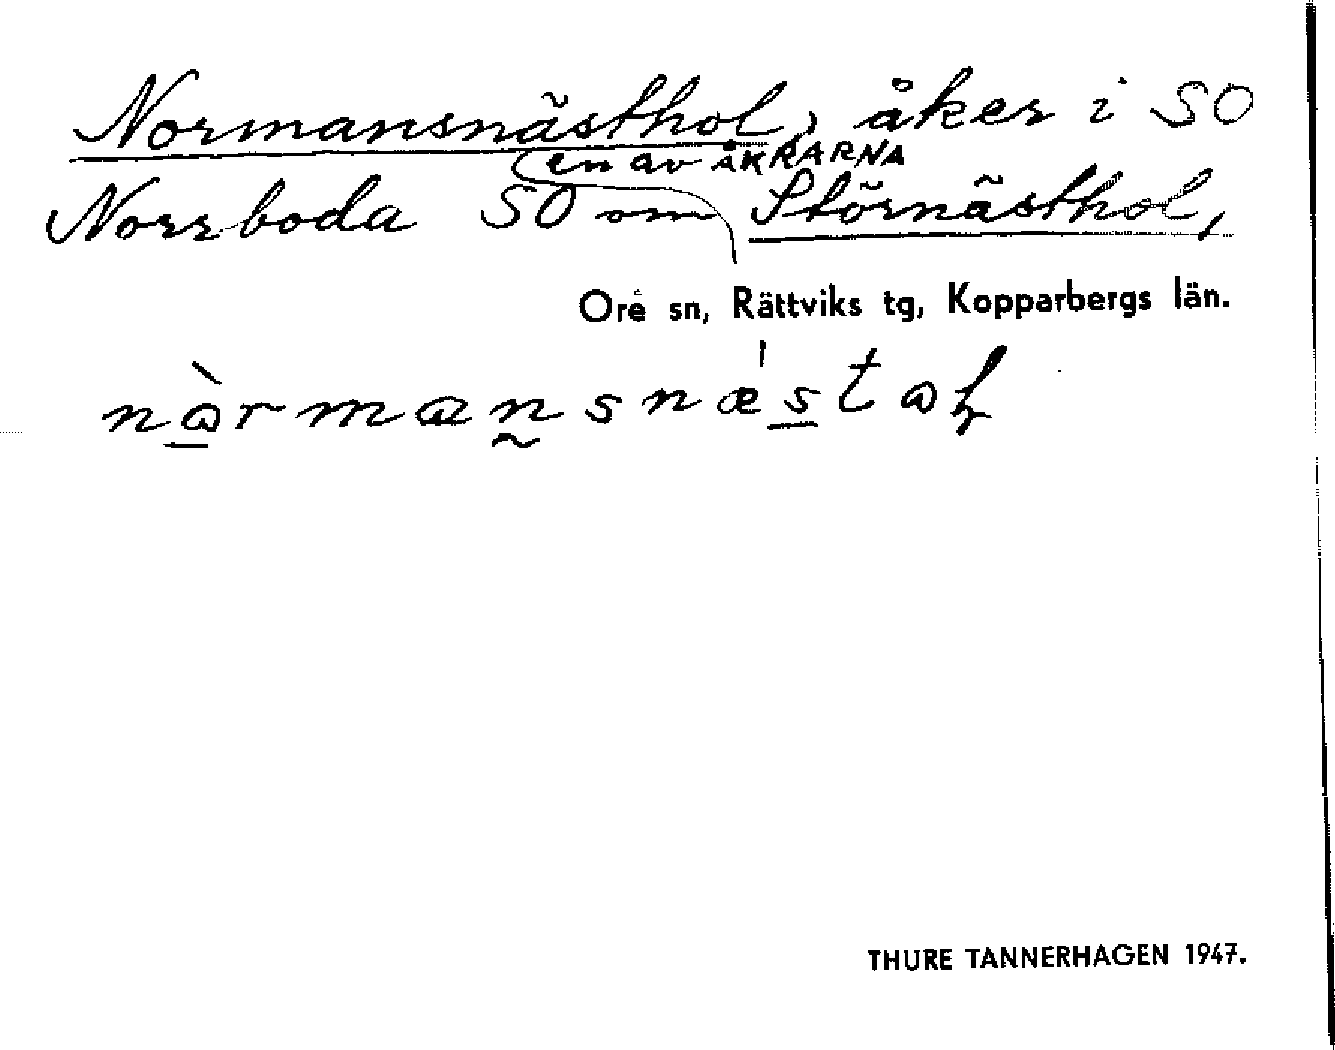 Normansnästhol, åker i SO
(en av ÅKRARNA
Norrboda SO om Störnästhol,
Ore sn, Rättviks tg, Kopparbergs län.
THURE TANNERHAGEN 1947.